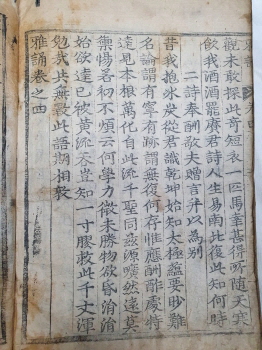 觀未敢探此奇短衣一匹馬幸甚得所隨天寒
飲我酒酒罷賡君詩人生易南北復此知何時
二詩奉酬敬夫贈言并以為別
昔我抱氷炭從君識乾坤始知太極蘊要眇難
名論謂有寧有跡謂無復何存惟應酬酢處特
達見本根萬化自此流千聖同茲源曠然遠莫
禦惕若初不煩云何學力微未勝物欲昏涓涓
始欲達已被黃流呑豈知一寸膠救此千丈渾
勉哉共無斁此語期相敦
雅誦卷之四